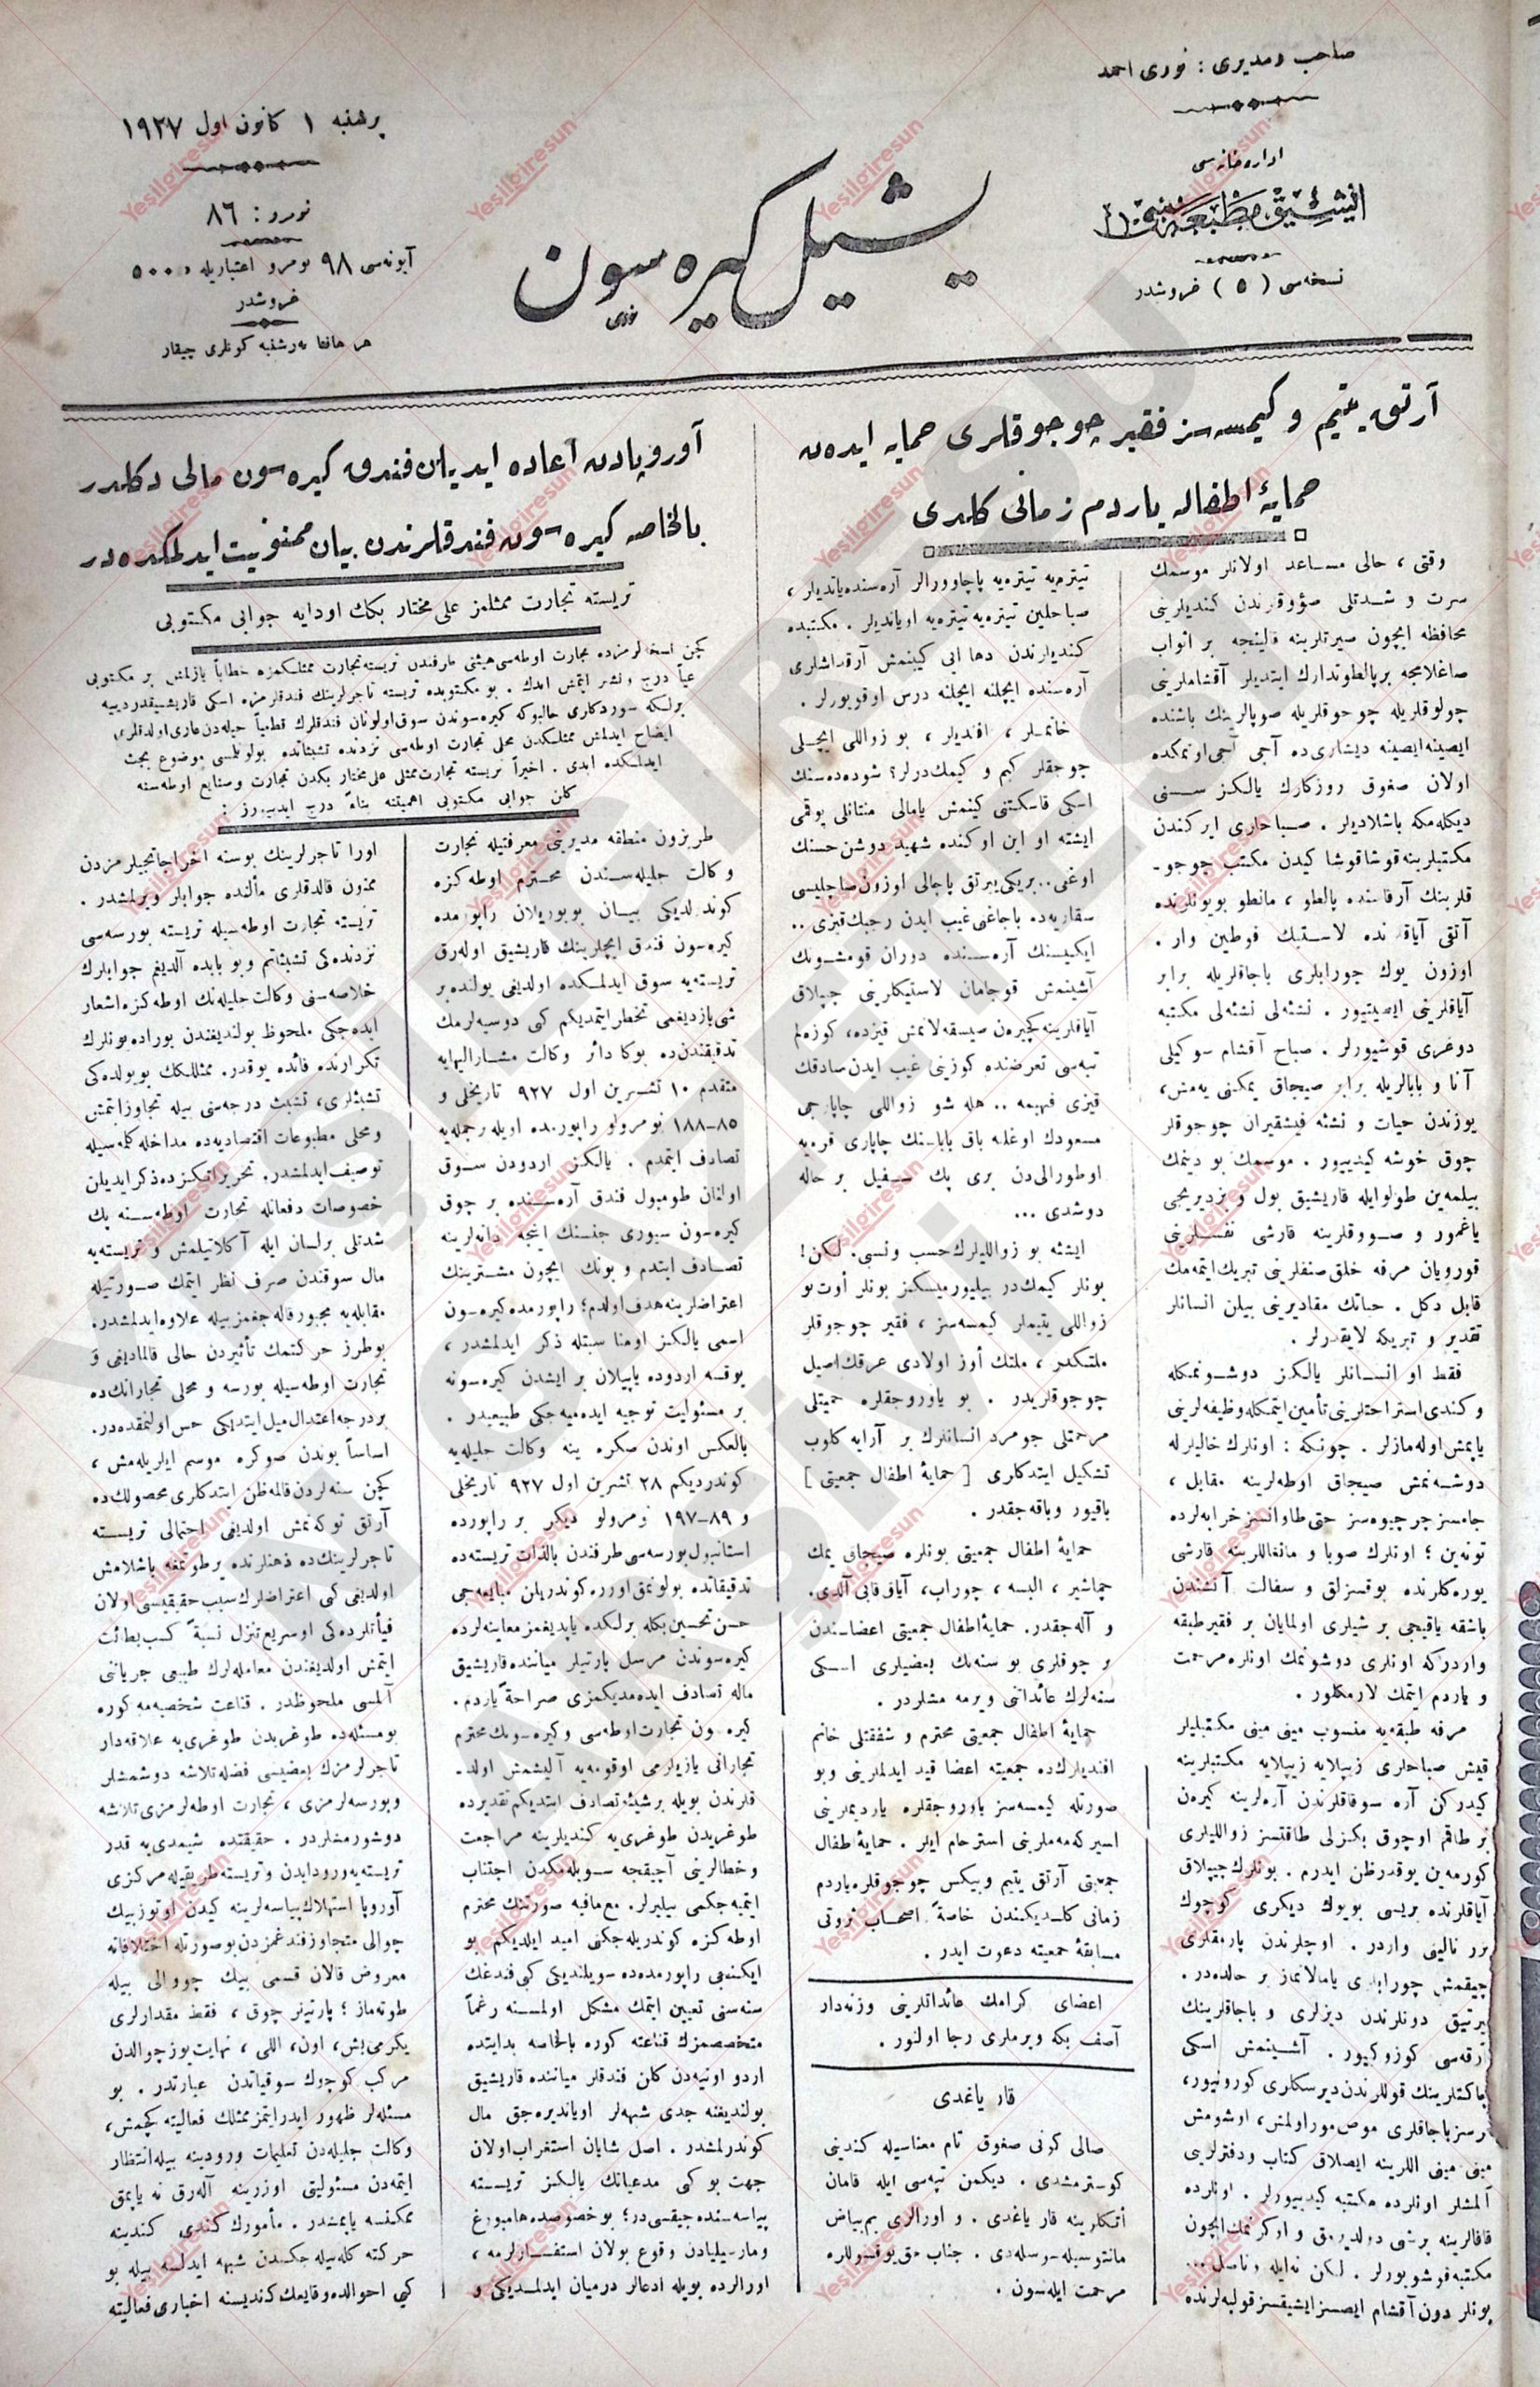 صاحب ومديری : نوری احمد
اداره‌خانه‌سی
نسخه‌سی ( ٥ ) غروشدر
يشيل كيره‌سون
پرشنبه ١ كانون اول ١٩٢٧
نومرو : ٨٦
آبونه‌سی ٩٨ نومرو اعتباريله ٥٠٠
غروشدر
هر هفته پرشنبه كونلری چيقار
آرتق يتيم و كيمسه‌سز فقير چوجوقلری حمايه ايده‌ن
حمايهٔ اطفاله ياردم زمانی كلدی
وقتی ، حالی مساعد اولانلر موسمك
سرت و شدتلی صوغوقلرندن كنديلرينی
محافظه ايچون صيرتلرينه قالينجه بر اثواب
صاغلامجه بر پالطو تدارك ايتديلر آقشاملرينی
چولوقلريله چوجوقلريله صوپالرينك باشنده
ايصينه ايصينه ديشاری‌ده آجی آجی اوتمكده
اولان صغوق روزكارك يالكز سسنی
ديكله‌مكه باشلاديلر . صباحلری ايركندن
مكتبلرينه قوشا قوشا كيدن مكتب چوجو-
قلرينك آرقاسنده پالطو ، مانطو بويونلرنده
آتقی آياقلرنده لاستيك فوطين وار .
اوزون يوك چورابلری باجاقلريله برابر
آياقلرينی ايصيتيور . نشئه‌لی نشئه‌لی مكتبه
دوغری قوشيورلر . صباح آقشام سوكيلی
آنا و بابالريله برابر صيجاق يمكنی يه‌مش ،
يوزندن حيات و نشئه فيشقيران چوجوقلر
چوق خوشه كيدييور . موسمك بو دينمك
بيلمه‌ين طولو ايله قاريشيق بول و بزديريجی
ياغمور و صووقلرينه قارشی نفسلرينی
قورويان مرفه خلق صنفلرينی تبريك ايتمه‌مك
قابل دكل . حياتك مقاديرينی بيلن انسانلر
تقدير و تبريكه لايقدرلر .
فقط او انسانلر يالكز دوشونمكله
و كندی استراحتلرينی تأمين ايتمكله وظيفه‌لرينی
ياپمش اوله‌مازلر . چونكه : اونلرك خاليلرله
دوشه‌نمش صيجاق اوطه‌لرينه مقابل ،
جامسز چرچيوه‌سز حتی طاوانسز خرابه‌لرده
تونه‌ين ؛ اونلرك صوبا و مانغاللرينه قارشی
يوره‌كلرنده يوقسزلق و سفالت آتشندن
باشقه ياقيجی بر شيلری اولمايان بر فقير طبقه
واردركه اونلری دوشونمك اونلره مرحمت
و ياردم ايتمك لازمكلور .
مرفه طبقه‌يه منسوب مينی مينی مكتبليلر
قيش صباحلری زيپلايه زيپلايه مكتبلرينه
كيدركن آره سوقاقلرندن آره‌لرينه كيرن
بر طاقم اوچوق بكزلی طاقتسز زواللیلری
كورمه‌ين يوقدر ظن ايدرم . بونلرك چيپلاق
آياقلرنده بريسی بويوك ديكری كوچوك
برر نالينی واردر . اوچلرندن پارمقلری
چيقمش چورابلری يامالانماز بر حالده‌در .
يرتيق دونلرندن ديزلری و باجاقلرينك
آرقه‌سی كوزوكيور . آشينمش اسكی
جاكتلرينك قوللرندن ديرسكلری كورونيور ،
مينی مينی اللرينه ايصلاق كتاب و دفترلرينی
آلمشلر اونلرده مكتبه كيدييورلر . اونلرده
مكتبه قوشويورلر . لكن نه‌ايله و ناصل ...
بونلر دون آقشام ايصسز ايشيقسز قولبه‌لرنده
تيتره‌يه تيتره‌يه پاچاوورالر آره‌سنده ياتديلر ،
صباحلين تيتره‌يه تيتره‌يه اوياندیلر . مكتبده
كنديلرندن دها ايی كيينمش آرقداشلری
آره‌سنده ايچلنه ايچلنه درس اوقويورلر .
خانملر ، افنديلر ، بو زواللی ايچلی
چوجقلر كيم و كيمك‌درلر؟ شو ده‌ده‌سنك
اسكی قاسكتنی كيمش يامالی منتانلی يوقمی
ايشته او اين اوكنده شهيد دوشن حسنك
اوغلی .. بريكی ييرتق پاچالی اوزون صاچليسی
سقاريه‌ده باجاغنی غيب ايدن رجبك قيزی ..
ايكيسنك آره‌سنده دوران قومشونك
آشينمش قوجامان لاستيكلرينی چيپلاق
آياقلرينه كچيرن صيسقه‌لانمش قيزده ، كوزه‌لم
تپه‌سی تعرضنده كوزينی غيب ايدن صادقك
قيزی فهيمه .. هله شو زواللی چاپارجی
مسعودك اوغلنه باق باباسنك چاپاری قره‌يه
اوطورالی‌دن بری پك سفيل بر حاله
دوشدی ...
ايشته بو زواللیلرك حسب و نسبی . لكن !
بونلر كيمك‌در بيليورميسكز بونلر أوت بو
زواللی يتيملر كيمسه‌سز ، فقير چوجوقلر
ملتكدر ، ملتك أوز اولادی عرقك اصيل
چوجوقلريدر . بو ياوروجقلره حميتلی
مرحمتلی جومرد انسانلرك بر آرايه كلوب
تشكيل ايتدكلری [ حمايهٔ اطفال جمعيتی ]
باقيور و باقه‌جقدر .
حمايهٔ اطفال جمعيتی بونلره صيجاق يمك
چماشير ، البسه ، چوراب ، آياق قابی آلدی .
و آله‌جقدر . حمايهٔ اطفال جمعيتی اعضاسندن
بر چوقلری بو سنه‌نك بعضيلری اسكی
سنه‌لرك عائداتنی ويرمه‌مشلردر .
حمايهٔ اطفال جمعيتی محترم و شفقتلی خانم
افنديلرك‌ده جمعيته اعضا قيد ايدلملرينی و بو
صورتله كيمسه‌سز ياوروجقلره ياردملرينی
اسيركه‌مه‌ملرينی استرحام ايلر . حمايهٔ اطفال
جمعيتی آرتق يتيم و بيكس چوجوقلره ياردم
زمانی كلديكندن خاصةً اصحاب ثروتی
مسابقهٔ جمعيته دعوت ايدر .
اعضای كرامك عائداتلرينی وزنه‌دار
آصف بكه ويرملری رجا اولنور .
قار ياغدی
صالی كونی صغوق تام معناسيله كندينی
كوسترمشدی . ديكمن تپه‌سی ايله قامان
أتكلرينه قار ياغدی . و اورالری بم‌بياض
مرحمت ايله‌سون .
آوروپادن اعاده ايديلن فندق كيره‌سون مالی دكلدر
بالخاصه كيره‌سون فندقلرندن بيان ممنونيت ايدلمكده‌در
تريسته تجارت ممثلمز علی مختار بكك اودايه جوابی مكتوبی
كچن نسخه‌لرمزده تجارت اوطه‌سی هيئتی طرفندن تريسته تجارت ممثلكمزه خطاباً يازلمش بر مكتوبی
عيناً درج و نشر ايتمش ايدك . بو مكتوبده تريسته تاجرلرينك فندقلرمزه اسكی قاريشيقدر دييه
ايضاح ايدلمش ممثلكدن محلی تجارت اوطه‌سی نزدنده تشبثاتده بولونلمسی موضوع بحث
ايدلمكده ايدی . اخيراً تريسته تجارت ممثلی علی مختار بكدن تجارت وصنايع اوطه‌سنه
كلن جوابی مكتوبی اهميتنه بناءً درج ايدييورز :
طربزون منطقه مديريتی معرفتيله تجارت
وكالت جليله‌سندن محترم اوطه‌كزه
كوندلديكی بيان بويوريلان راپورمده
كيره‌سون فندق ايچلرينك قاريشيق اوله‌رق
تريسته‌يه سوق ايدلمكده اولديغی يولنده بر
شی يازديغمی تخطر ايتمديكم كبی دوسيه‌لرمك
تدقيقنده‌ده بوكا دائر وكالت مشاراليهايه
متقدم ١٠ تشرين اول ٩٢٧ تاريخلی و
٨٥-١٨٨ نومرولو راپورمده اويله برجمله‌يه
تصادف ايتمدم . يالكز اردودن سوق
اولنان طومبول فندق آره‌سنده بر چوق
كيره‌سون سيوری جنسنك اينجه دانه‌لرينه
تصادف ايتدم و بونك ايچون مشترينك
اعتراضلرينه هدف اولدم ؛ راپورمده كيره‌سون
اسمی يالكز او مناسبتله ذكر ايدلمشدر ،
يوقسه اردوده ياپيلان بر ايشدن كيره‌سونه
بر مسئوليت توجيه ايده‌ميه‌جكی طبيعيدر .
بالعكس اوندن صكره ينه وكالت جليله‌يه
كوندرديكم ٢٨ تشرين اول ٩٢٧ تاريخلی
و ٨٩-١٩٧ نومرولو ديكر بر راپورده
استانبول بورسه‌سی طرفندن بالذات تريسته‌ده
تدقيقاتده بولونمق اوزره كوندريلن مبايعه‌جی
حسن تحسين بكله برلكده ياپديغمز معاينه‌لرده
كيره‌سوندن مرسل پارتيلر مياننده قاريشيق
ماله تصادف ايده‌مديكمزی صراحةً يازدم .
كيره‌سون تجارت اوطه‌سی و كيره‌سونك محترم
تجارانی يازيلرمی اوقومه‌يه آليشمش اولد-
قلرندن بويله برشيئه تصادف ايتديكم تقديرده
طوغريدن طوغری‌يه كنديلرينه مراجعت
وخطالرينی آچيقجه سويله‌مكدن اجتناب
ايتميه‌جكمی بيليرلر . مع‌مافيه صورتنك محترم
اوطه‌كزه كوندريله‌جكنی اميد ايلديكم بو
ايكنجی راپورمده‌ده سويلنديكی كبی فندغك
سنه‌سنی تعيين ايتمك مشكل اولمسنه رغماً
متخصصمزك قناعته كوره بالخاصه بدايتده
اردو اونيه‌دن كلن فندقلر مياننده قاريشيق
بولنديغنه جدی شبهه‌لر اويانديره‌جق مال
كوندرلمشدر . اصل شايان استغراب اولان
جهت بو كبی مدعياتك يالكز تريسته
پياسه‌سنده چيقمسی‌در ؛ بو خصوصده هامبورغ
ومارسيليادن وقوع بولان استفسارلرمه ،
اورالرده بويله ادعالر درميان ايدلمديكی و
اورا تاجرلرينك بوسنه اخراجاتجيلرمزدن
ممنون قالدقلری مآلنده جوابلر ويرلمشدر .
تريسته تجارت اوطه‌سيله تريسته بورسه‌سی
نزدنده‌كی تشبثاتم وبو بابده آلديغم جوابلرك
خلاصه‌سنی وكالت جليله‌نك اوطه‌كزه اشعار
ايده‌جكی ملحوظ بولنديغندن بوراده بونلرك
تكرارنده فائده يوقدر . ممثللكك بو يولده‌كی
تشبثلری ، تشبث درجه‌سنی بيله تجاوز ايتمش
ومحلی مطبوعات اقتصاديه‌ده مداخله كلمه‌سيله
توصيف ايدلمشدر . تحريراتكزده ذكر ايديلن
خصوصات دفعاتله تجارت اوطه‌سنه پك
شدتلی برلسان ايله آكلاتيلمش و تريسته‌يه
مال سوقندن صرف نظر ايتمك صورتيله
مقابله‌يه مجبور قاله‌جغمز بيله علاوه ايدلمشدر .
بوطرز حركتمك تأثيردن خالی قالماديغی و
تجارت اوطه‌سيله بورسه و محلی تجارانك‌ده
بردرجه اعتدال ميل ايتديكی حس اولنمقده‌در .
اساساً بوندن صوكره موسم ايلريله‌مش ،
كچن سنه‌لردن قالمه ظن ايتدكلری محصولك‌ده
آرتق توكه‌نمش اولديغی احتمالی تريسته
تاجرلرينك‌ده ذهنلرنده يرطوتمغه باشلامش
اولديغی كبی اعتراضلرك سبب حقيقيسی اولان
فيأتلرده‌كی او سريع تنزل نسبةً كسب بطائت
ايتمش اولديغندن معامله‌لرك طبيعی جرياننی
آلمسی ملحوظدر . قناعت شخصيه‌مه كوره
بومسئله‌ده طوغريدن طوغری‌يه علاقه‌دار
تاجرلرمزك بعضيسی فضله تلاشه دوشمشلر
وبورسه‌لرمزی ، تجارت اوطه‌لرمزی تلاشه
دوشورمشلردر . حقيقتده شيمدی‌يه قدر
تريسته‌يه ورود ايدن وتريسته طريقيله مركزی
آوروپا استهلاك پياسه‌لرينه كيدن اوتوز بيك
چوالی متجاوز فندغمزدن بو صورتله اختلافاته
معروض قالان قسمی بيك چووالی بيله
طوته‌ماز ؛ پارتيلر چوق ، فقط مقدارلری
يكرمی بش ، اون ، اللی ، نهايت يوز چوالدن
مركب كوچوك سوقياتدن عبارتدر . بو
مسئله‌لر ظهور ايدر ايتمز ممثللك فعاليته كچمش ،
وكالت جليله‌دن تعليمات ورودينه بيله انتظار
ايتمه‌دن مسئوليتی اوزرينه آله‌رق نه ياپمق
ممكنسه ياپمشدر . مأمورك كندی كندينه
حركته كله‌بيله‌جكندن شبهه ايدلسه بيله بو
كبی احوالده وقايعك كنديسنه اخباری فعاليته